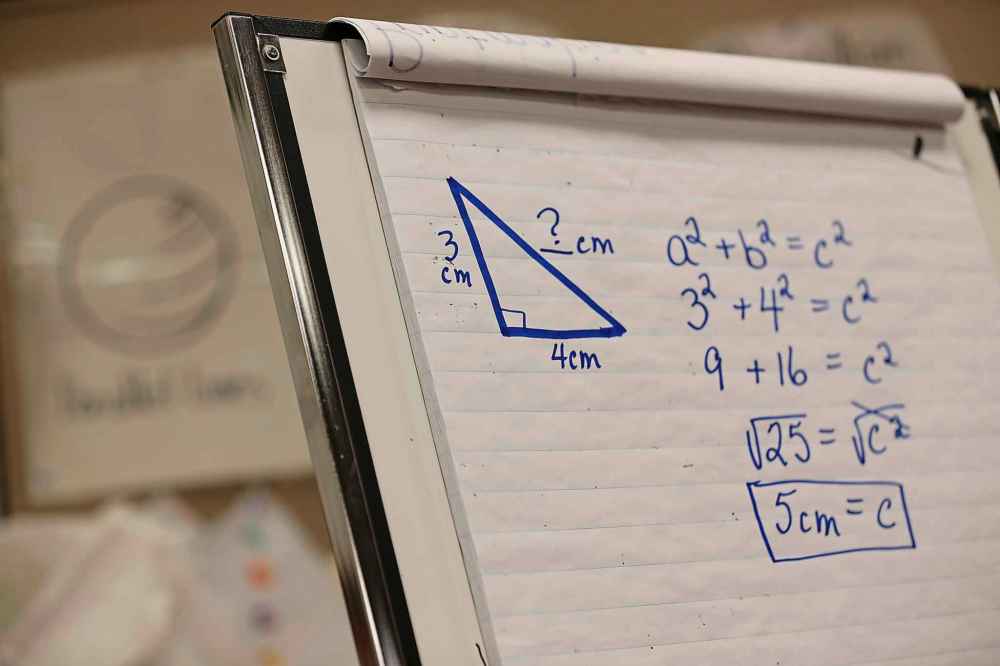 ? cm
3
cm
4cm
a² + b² = c²
3² + 4² = c²
9 + 16 = c²
√25 = √c²
5cm = c